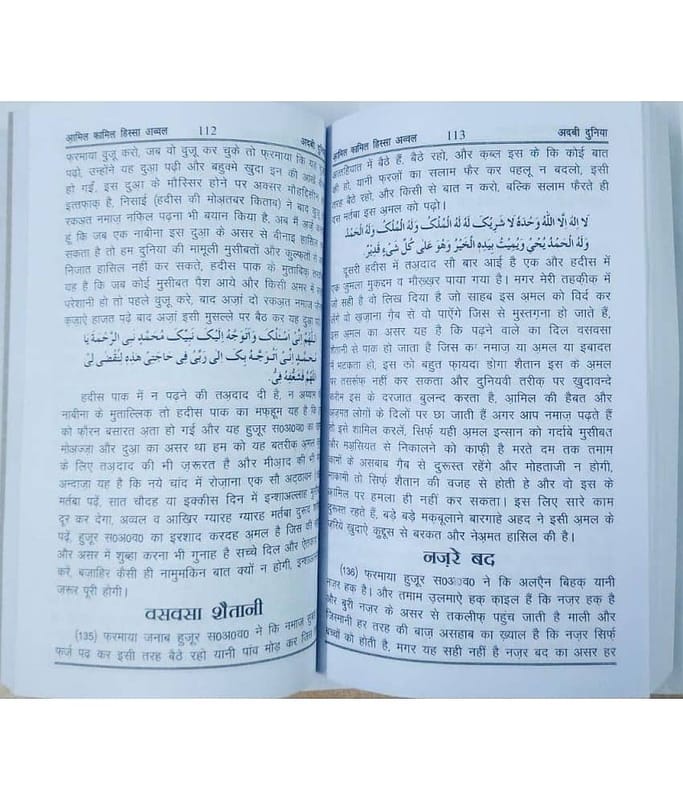 आ़मिल कामिल हिस्सा अव्वल 112 अदबी
फ़रमाया वुज़ू करो, जब वो वुज़ू कर चुके तो फ़रमाया कि यह
पढ़ो, उन्होंने यह दुआ़ पढ़ी और बहुक्मे ख़ुदा इन की आंखें
हो गईं, इस दुआ़ के मौस्सिर होने पर अक्सर मौहद्दिसीन
इत्तफ़ाक़ है, निसाई (हदीस की मोअ़तबर किताब) ने बाद वुज़ू
रकअ़त नमाज़ नफ़िल पढ़ना भी बयान किया है, अब मैं अर्ज़
हूं कि जब एक नाबीना इस दुआ़ के असर से बीनाइ हासिल
सकता है तो हम दुनिया की मामूली मुसीबतों और कुल्फ़तों
निजात हासिल नहीं कर सकते, हदीस पाक के मुताबिक़
यह है कि जब कोई मुसीबत पैश आये और किसी अमर में
परेशानी हो तो पहले वुज़ू करे, बाद अज़ां दो रकअ़त नमाज़
क़ज़ाऐ हाजत पढ़े बाद अज़ां इसी मुसल्ले पर बैठ कर यह दुआ़
اَللّٰهُمَّ اِنِّیْ اَسْئَلُكَ وَاَتَوَجَّهُ اِلَیْكَ نَبِیِّكَ مُحَمَّدٍ نَبِیِ الرَّحْمَةِ یَا
مُحَمَّدُ اِنِّیْ اَتَوَجَّهُ بِكَ اِلٰی رَبِّیْ فِیْ حَاجَتِیْ هٰذِهٖ لِتُقْضٰی لِیْ
اَللّٰهُمَّ فَشَفِّعْهُ فِیَّ.
हदीस पाक में न पढ़ने की तअ़दाद दी है, न
नाबीना के मुताल्लिक़ तो हदीस पाक का मफ़हूम यह है कि
को फ़ौरन बसारत अ़ता हो गई और यह हुज़ूर स०अ०व० का
मोअज्ज़ा और दुआ़ का असर था हम को यह बतरीक़ अ़मल
के लिए तअ़दाद की भी ज़रूरत है और मीआ़द की भी
अन्दाज़ा यह है कि नये चांद में रोज़ाना एक सौ अट्ठावन
मर्तबा पढ़ें, सात चौदह या इक्कीस दिन में इन्शाअल्लाह
दूर कर देगा, अव्वल व आखिर ग्यारह ग्यारह मर्तबा दुरूद
पढ़ें, हुज़ूर स०अ०व० का इरशाद करदह अ़मल है जिस की
और असर में शुब्हा करना भी गुनाह है सच्चे दिल और
करे, बज़ाहिर कैसी ही नामुमकिन बात क्यों न होगी,
ज़रूर पूरी होगी।
वसवसा शैतानी
(135) फ़रमाया जनाब हुज़ूर स०अ०व० ने कि नमाज़
फ़र्ज पढ़ कर इसी तरह बैठे रहो यानी पांव मोड़ कर जिस
आ़मिल कामिल हिस्सा अव्वल 113 अदबी दुनिया
अत्तहियात में बैठे हैं, बैठे रहो, और क़ब्ल इस के कि कोई बात
की हो, यानी फ़रजों का सलाम फैर कर पहलू न बदलो, इसी
तरह बैठे रहो, और किसी से बात न करो, बल्कि सलाम फैरते ही
दस मर्तबा इस अ़मल को पढ़ो।
لَا اِلٰهَ اِلَّا اللّٰهُ وَحْدَهٗ لَا شَرِیْكَ لَهٗ لَهُ الْمُلْكُ وَلَهُ الْمُلْكُ وَلَهُ الْحَمْدُ
وَلَهُ الْحَمْدُ یُحْیٖ وَیُمِیْتُ بِیَدِهِ الْخَیْرُ وَهُوَ عَلٰی كُلِّ شَیْءٍ قَدِیْرٌ.
दूसरी हदीस में तअ़दाद सौ बार आई है एक और हदीस में
एक जुमला मुक़दम व मौख़्ख़र पाया गया है। मगर मेरी तहक़ीक़ में
जो सही है वो लिख दिया है जो साहब इस अ़मल को विर्द कर
लेंगे वो ख़ज़ाना ग़ैब से वो पाऐंगे जिस से मुस्तग़ना हो जाते हैं,
इस अ़मल का असर यह है कि पढ़ने वाले का दिल वसवसा
शैतानी से पाक हो जाता है जिस का नमाज़ या अ़मल या इबादत
में भटकता हो, इस को बहुत फ़ायदा होगा शैतान इस के अ़मल
पर तसर्रूफ़ नहीं कर सकता और दुनियवी तरीक़ पर ख़ुदावन्दे
करीम इस के दरजात बुलन्द करता है, आ़मिल की हैबत और
अ़ज़मत लोगों के दिलों पर छा जाती हैं अगर आप नमाज़ पढ़ते हैं
तो इसे शामिल करलें, सिर्फ़ यही अ़मल इन्सान को गर्दाबे मुसीबत
और मअ़सियत से निकालने को काफ़ी है मरते दम तक तमाम
कामों के असबाब ग़ैब से दुरूस्त रहेंगे और मोहताजी न होगी,
नाकामी तो सिर्फ़ शैतान की वजह से होती हे और वो इस के
आ़मिल पर हमला ही नहीं कर सकता। इस लिए सारे काम
दुरूस्त रहते हैं, बड़े बड़े मक़बूलाने बारगाहे अहद ने इसी अ़मल के
ज़रिये ख़ुदाऐ क़ुद्दूस से बरकत और नेअ़मत हासिल की है।
नज़रे बद
(136) फ़रमाया हुज़ूर स०अ०व० ने कि अलऐन बिहक़ यानी
नज़र हक़ है। और तमाम उ़लमाऐ हक़ क़ाइल हैं कि नज़र हक़ है
और बुरी नज़र के असर से तकलीफ़ पहुंच जाती है माली और
जिस्मानी हर तरह की बाज़ असहाब का ख़्याल है कि नज़र सिर्फ़
बच्चों को होती है, मगर यह सही नहीं है नज़र बद का असर हर